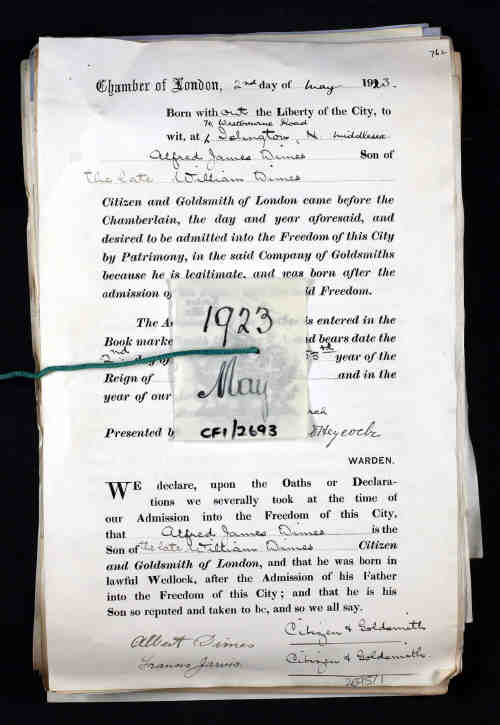 762
Chamber of London, 2nd day of May 1923.
Born without the Liberty of the City, to
70, Westbourne Road
wit, at Islington, N Middlesex
Alfred James Dimes Son of
the late William Dimes
Citizen and Goldsmith of London came before the
Chamberlain, the day and year aforesaid, and
desired to be admitted into the Freedom of this City
by Patrimony, in the said Company of Goldsmiths
because he is legitimate, and was born after the
admission of ld Freedom.
The A is entered in the
Book marke nd bears date the
2nd day of 53rd year of the
Reign of and in the
year of our
Presented b Heycock
WARDEN.
1923
May
CF1/2693
WE declare, upon the Oaths or Declara-
tions we severally took at the time of
our Admission into the Freedom of this City,
that Alfred James Dimes is the
Son of the late William Dimes Citizen
and Goldsmith of London, and that he was born in
lawful Wedlock, after the Admission of his Father
into the Freedom of this City; and that he is his
Son so reputed and taken to be, and so we all say.
Albert Dimes Citizen & Goldsmith
Francis Jarvis Citizen & Goldsmith